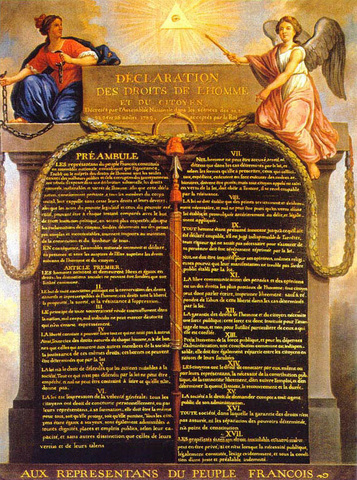 DÉCLARATION
DES DROITS DE L'HOMME
ET DU CITOYEN,
Décrétés par l'Assemblée Nationale dans les séances des 20, 21,
acceptés par le Roi
PRÉAMBULE
LES représentans du peuple François, constitués
en assemblée nationale, considérant que l'ignorance,
l'oubli ou le mépris des droits de l'homme sont les seules
causes des malheurs publics et de la corruption des gouvernemens
ont résolu d'exposer dans une déclaration
les droits
naturels, inaliénables et sacrés de l'homme; afin que cette déclaration,
constamment présente à tous les membres du corps
social, leur rappelle sans cesse leurs droits et leurs devoirs;
afin que les actes du pouvoir législatif et ceux du pouvoir exécutif,
pouvant être à chaque instant comparés avec le but
de toute institution politique, en soient plus respectés; afin que
les réclamations des citoyens, fondées désormais sur des principes
simples et incontestables, tournent toujours au maintien
de la constitution et du bonheur de tous.
EN conséquence, l'assemblée nationale reconnoit et déclare,
en présence et sous les auspices de l'Être suprême les droits
suivans de l'homme et du citoyen.
ARTICLE PREMIER.
LES hommes naissent et demeurent libres et égaux en
droits; les distinctions sociales ne peuvent être fondées que sur
l'utilité commune.
LE but de toute association politique est la conservation des droits
naturels et imprescriptibles de l'homme; ces droits sont la liberté,
la propriété, la sureté, et la résistance à l'oppression.
LE principe de toute souveraineté réside essentiellement dans
la nation, nul corps, nul individu ne peut exercer d'autorité
qui n'en émane expressément.
LA liberté consiste à pouvoir faire tout ce qui ne nuit pas à autrui
Ainsi, l'exercice des droits naturels de chaque homme, n'a de bornes
que celles qui assurent aux autres membres de la société
la jouissance de ces mêmes droits; ces bornes ne peuvent
être déterminées que par la loi.
LA loi n'a le droit de défendre que les actions nuisibles à la
société. Tout ce qui n'est pas défendu par la loi ne peut être
empêché, et nul ne peut être contraint à faire ce qu'elle n'ordonne
pas.
VI.
LA loi est l'expression de la volonté générale; tous les
citoyens ont droit de concourir personnellement, ou par
leurs représentans, à sa formation; elle doit être la même
pour tous, soit qu'elle protége, soit qu'elle punisse. Tous les citoyens
étant égaux à ses yeux, sont également admissibles à
toutes dignités, places et emplois publics, selon leur capacité,
et sans autres distinctions que celles de leurs
vertus et de leurs talens.
VII.
NUL homme ne peut être accusé, arrêté ni
détenu que dans les cas déterminés par la loi, et
selon les formes qu'elle a prescrites,
VIII.
LA loi ne doit établir que des peines
IX.
TOUT homme étant présumé innocent jusqu'à ce qu'il ait
été déclaré coupable, s'il est jugé indispensable de l'arrêter,
toute rigueur qui ne seroit pas nécessaire pour s'assurer de
sa personne doit être sévèrement réprimée par la loi.
NUL ne doit être inquiété pour ses opinions, mêmes religieuses
pourvu que leur manifestation ne trouble pas l'ordre
public établi par la loi.
XI.
LA libre communication des pensées et des opinions
est un des droits les plus précieux de l'homme; tout citoyen
peut donc parler, écrire, imprimer librement; sauf à répondre
de l'abus de cette liberté dans les cas déterminés
par la loi.
XII.
LA garantie des droits de l'homme et du citoyen nécessite
une force publique; cette force est donc instituée pour l'avantage
de tous, et non pour l'utilité particulière de ceux à qui
elle est confiée.
XIII.
XIV
LES citoyens ont le droit de constater par eux-mêmes ou
par leurs représentans, la nécessité de la contribution publique,
LA société a le droit de demander compte à tout agent
public de son administration.
XVI.
TOUTE société, dans laquelle la garantie des droits n'est
pas assurée, ni la séparation des pouvoirs déterminée,
n'a point de constitution.
XVII.
LES propriétés étant un droit inviolable et sacré, nul ne
peut en être privé, si ce n'est lorsque la nécessité publique,
légalement constatée, l'exige évidemment, et sous la condition
d'une juste et préalable indemnité.
AUX REPRESENTANS DU PEUPLE FRANCOIS